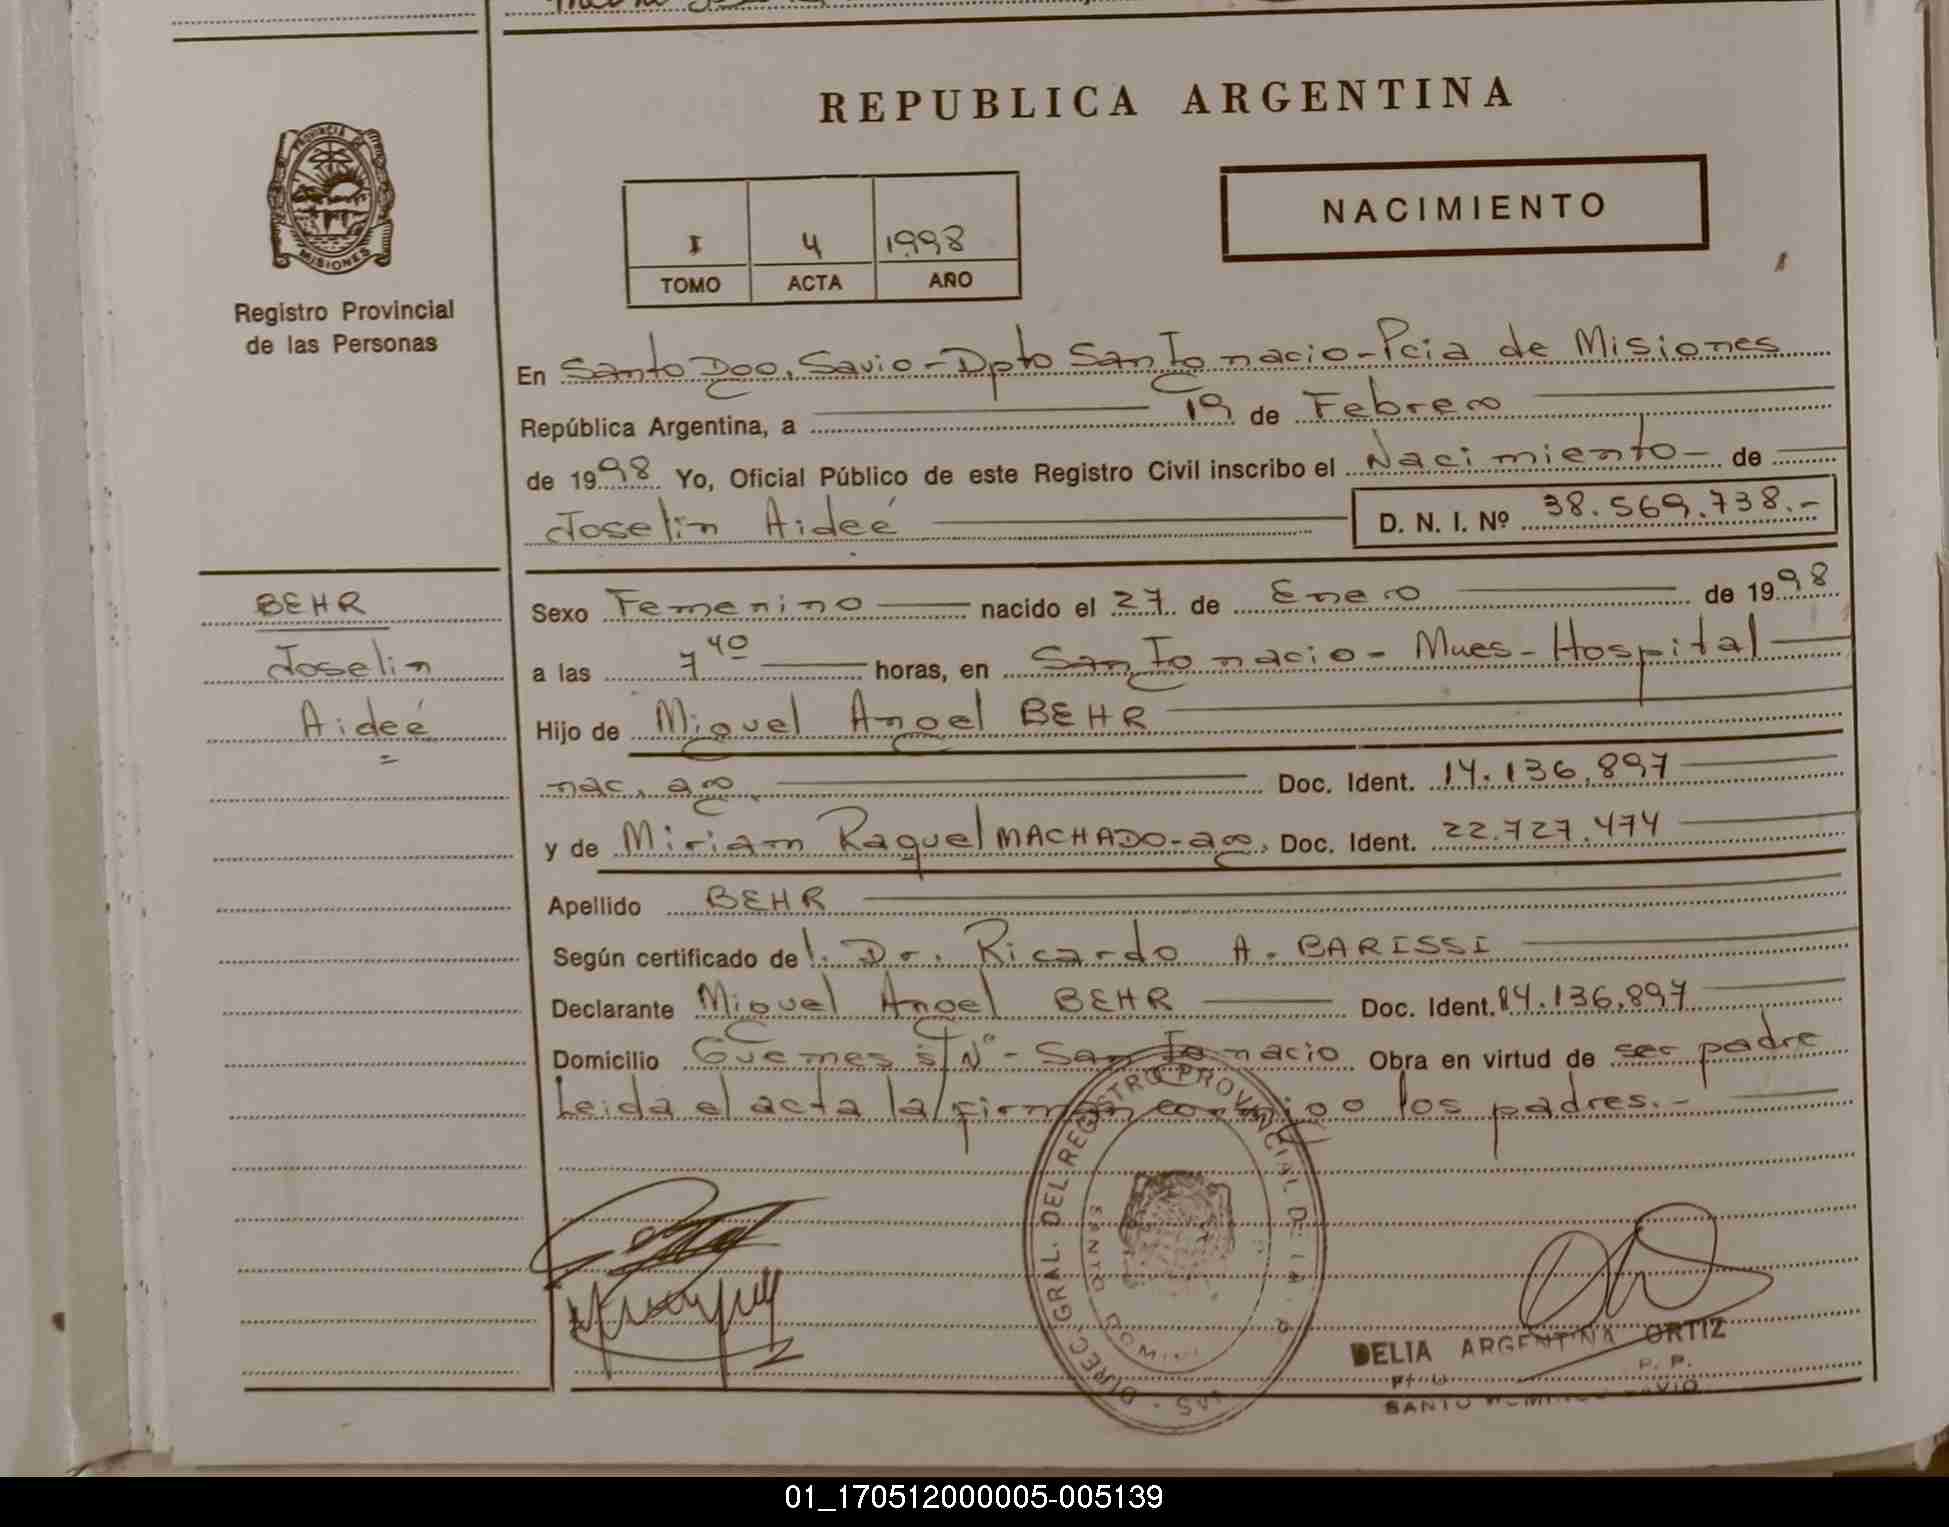 REPUBLICA ARGENTINA
PROVINCIA DE
MISIONES
Registro Provincial
de las Personas
I 4 1998
TOMO ACTA AÑO
NACIMIENTO
En Santo Dgo. Savio - Dpto San Ignacio - Pcia de Misiones
República Argentina, a 19 de Febrero
de 1998 Yo, Oficial Público de este Registro Civil inscribo el Nacimiento - de
Joselin Aideé D. N. I. Nº 38.569.738.-
BEHR
Joselin
Aideé
Sexo Femenino nacido el 27 de Enero de 1998
a las 7 40 horas, en San Ignacio - Mnes - Hospital
Hijo de Miguel Angel BEHR
nac. ago. Doc. Ident. 14.136.897
y de Miriam Raquel MACHADO - ago. Doc. Ident. 22.727.474
Apellido BEHR
Según certificado del Dr. Ricardo A. BARISSI
Declarante Miguel Angel BEHR Doc. Ident. 14.136.897
Domicilio Guemes s/Nº - San Ignacio Obra en virtud de ser padre
Leida el acta la firman conmigo los padres.-
DIREC. GRAL. DEL REGISTRO PROVINCIAL DE LA
SANTO
DELIA ARGENTINA ORTIZ
SANTO SAVIO
01_170512000005-005139